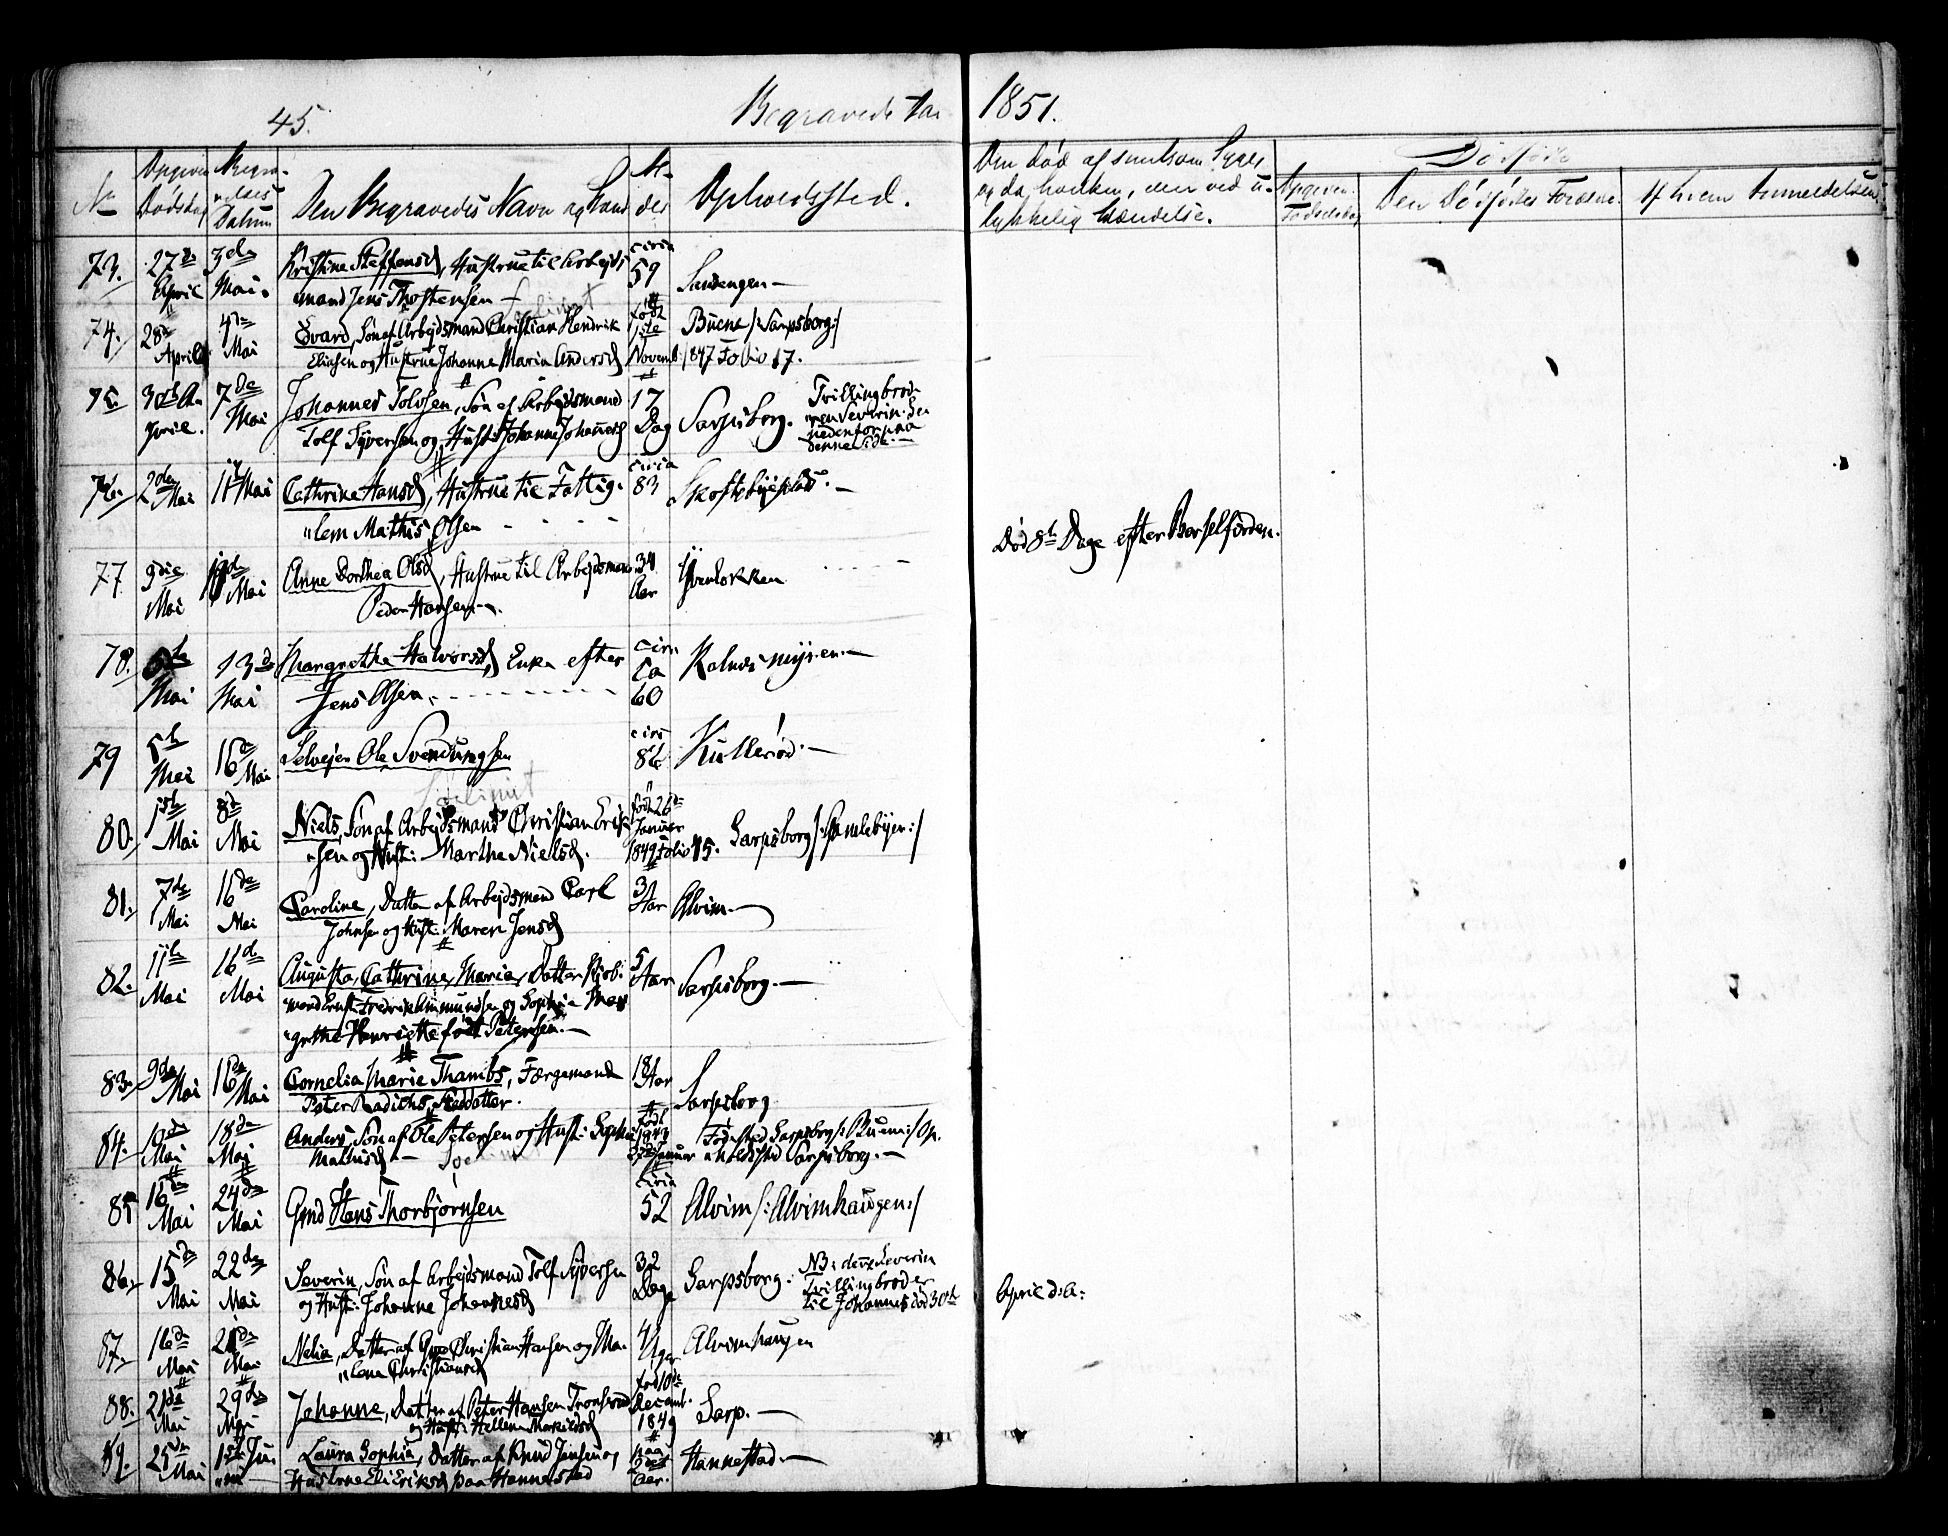 45.
Begravede Aar 1851.
No
Opgiven Dødsdag
Begravelses Datum
Den Begravedes Navn og Stand
Alder
Opholdsted.
Den død af smitsom Syge,
og da hvilken, eller ved u-
lykkelig Hændelse.
Dødfødte
Opgiven Fødselsdag
Den Dødfødtes Forældre.
Af hvem Anmeldelsen
73. 27de April 3die Mai. Kristine Steffensd, Hustrue til Arbejds
mand Jens Thostensen circa 59 Sandengen
74. 28de April 4de Mai Edvard, Søn af Arbejdsmand Christian Hendrik
Eliasen og Hustrue Johanne Maria Andersd født 1ste Novemb: 1847 Folio 17. Buene /: Sarpsborg:/
75. 30te April. 7de Mai Johannes Tolvsen, Søn af Arbejdsmand
Tolf Syversen og Hust: Johanne Johannesd 17 Dag Sarpsborg. Tvillingbrod-
eren Severin. See
nedenfor paa
denne Side.
76. 2den Mai 11te Mai Cathrine Hansd, Hustrue til Fattig-
"lem Mathis Olsen circa 83
77. 9die Mai Mai Anne Dorthea Olsd, Hustrue til Arbejdsmand
Peder Hansen 34 Aar
Død 8te Dage efter Barselfærden.
78. Mai 13de Mai Margrethe Halvorsd, Enke efter
Jens Olsen circa 60 Kalnesmyren
79 5te Mai 16de Mai Selvejer Ole Svendungsen circa 86 Kullerød
80. 1ste Mai 8de Mai Niels, Søn af Arbejdsmand Christian Erik-
"sen og Hust: Marthe Nielsd. født 26de Januar 1849 Folio 45. Sarpsborg /: Gamlebyen:/
81. 7de Mai 16de Mai Caroline, Datter af Arbejdsmand Carl
Johnsen og Hust: Maren Jensd 3 Aar Alvim
82. 11te Mai 16de Mai Augusta Cathrine Marie, Datter Kjøb-
"mand Ernst Fredrik Ammundsen og Sophie Mar
"grethe Henriette født Petersen. 5 Aar Sarpsborg.
83. 9de Mai 16de Mai Cornelia Marie Thambs, Færgemand
Peter Radichs Steddatter. 18 Aar Sarpsborg
84. 10de Mai 18de Mai Anders, Søn af Ole Petersen og Hust: Sophie
Mathisd født Januar Fødested Sarpsborg /: Buene:/ Op-
"holdsted Sarpsborg.
85 16de Mai 24de Mai Gmd Hans Thorbjørnsen circa 52 Alvim /: Alvimhaugen:/
86. 15de Mai 22de Mai Severin, Søn af Arbejdsmand Tolf Syversen
og Hust: Johanne Johannesd 32 Dage Sarpsborg. NB: denne Severin
Tvillingbroder
til Johannes død 30te April d: A:
87. 16de Mai Mai Nelia, Datter af Christian Hansen og Ma-
"lene Christiansd 4 Uger Alvimhaugen
88. 21de Mai 29de Mai Johanne, Datter af Peter Hansen
og Hust: Hellene født 10de Decemb: 1849 Sarp.
89. 25de Mai 1ste Juni Laura Sophia, Datter af Knud Jensen og
Hustrue Eli Eriksd paa Hannestad paa Aar. Hannestad